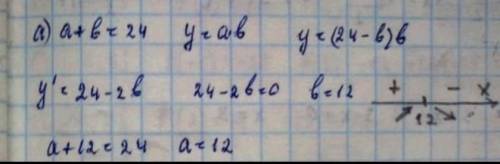 а) a+b=24 y=ab y=(24-b)b
y'=24-2b 24-2b=0 b=12 + - x
12
a+12=24 a=12